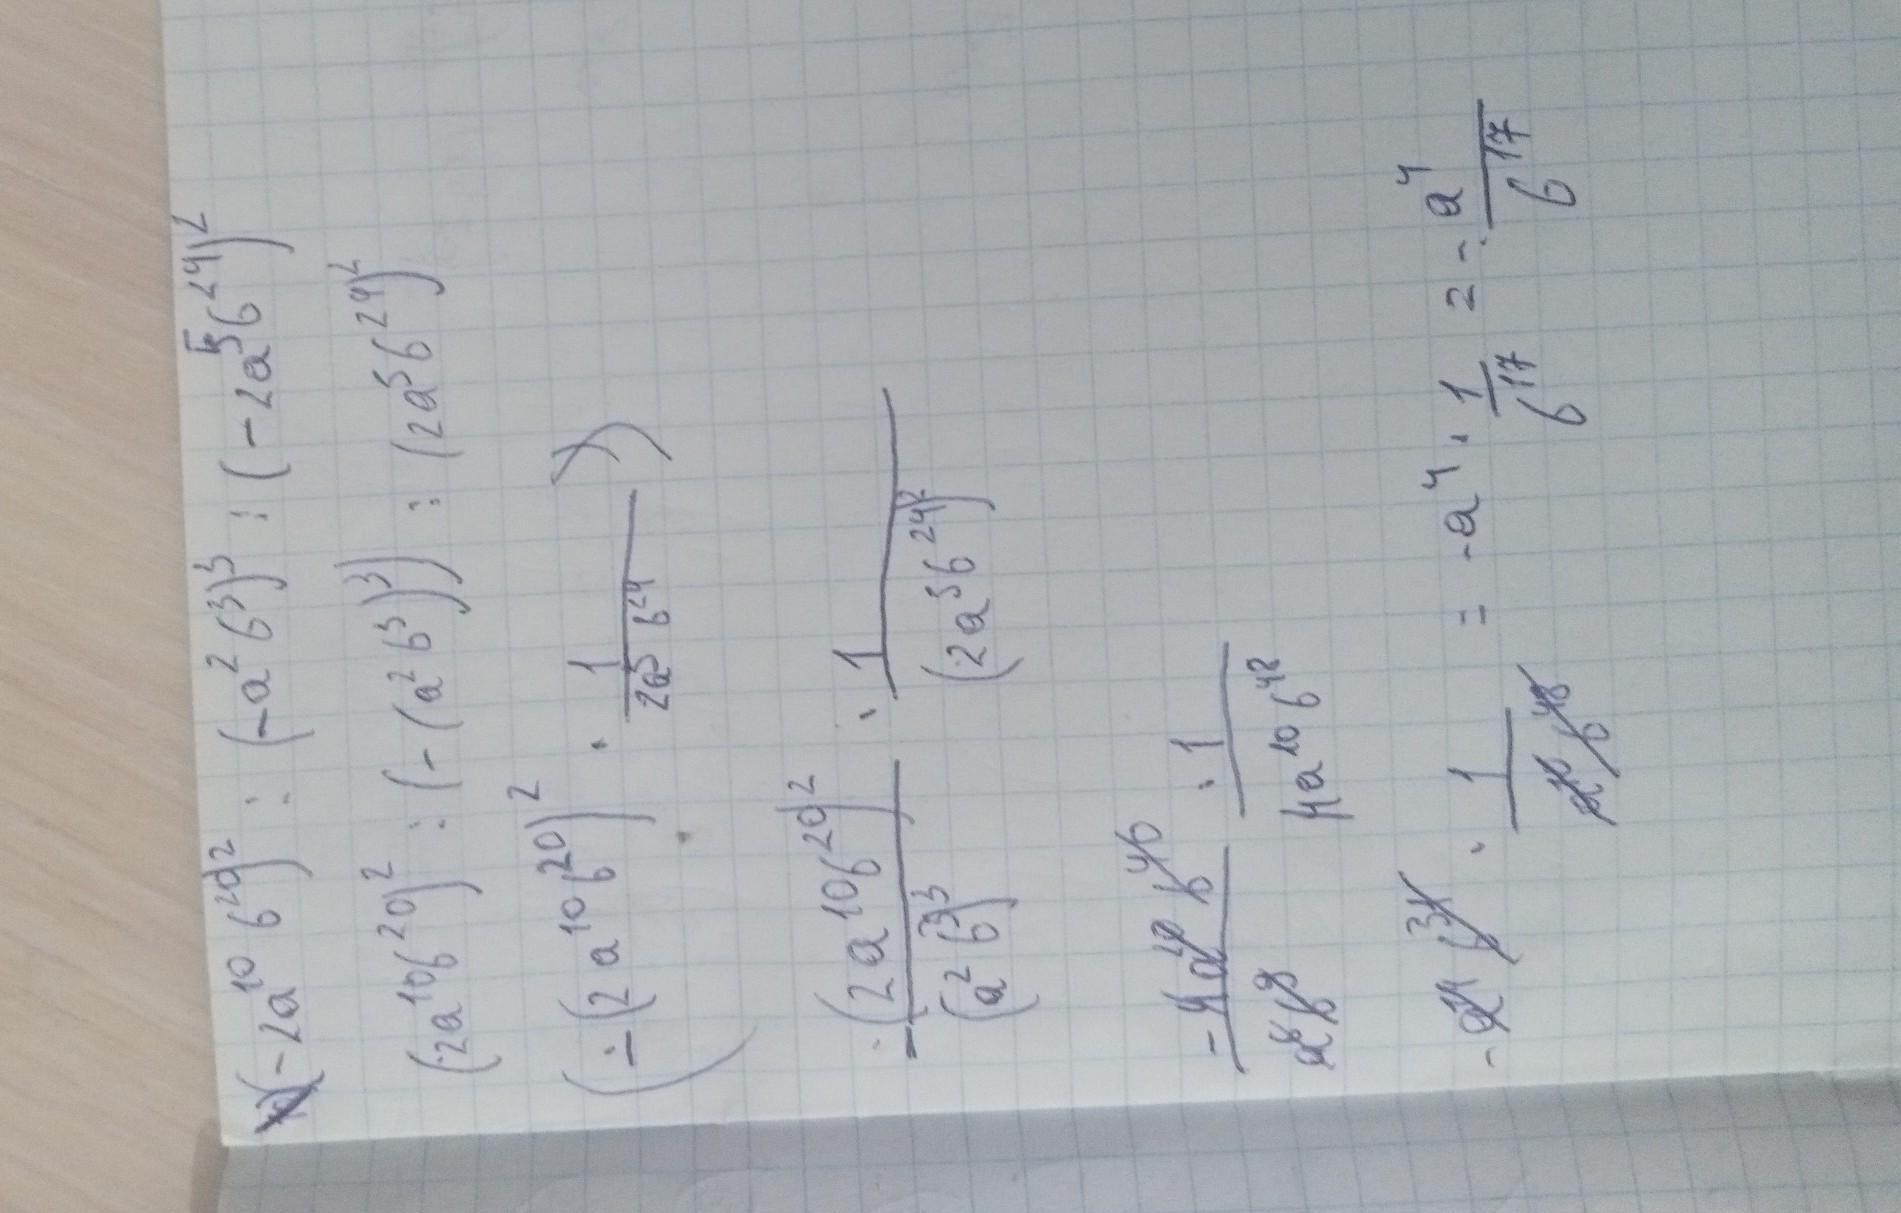 (-2a¹⁰b²⁰)² : (-a²b³)³ : (-2a⁵b²⁴)²
(2a¹⁰b²⁰)² : (-(a²b³)³) : (2a⁵b²⁴)²
(-(2a¹⁰b²⁰)² · 1/2a⁵b²⁴)
-(2a¹⁰b²⁰)²/(a²b³)³ · 1/(2a⁵b²⁴)²
-4a²⁰b⁴⁰/a⁶b⁹ · 1/4a¹⁰b⁴⁸
-a¹⁴b³¹ · 1/a¹⁰b⁴⁸ = -a⁴ · 1/b¹⁷ = -a⁴/b¹⁷